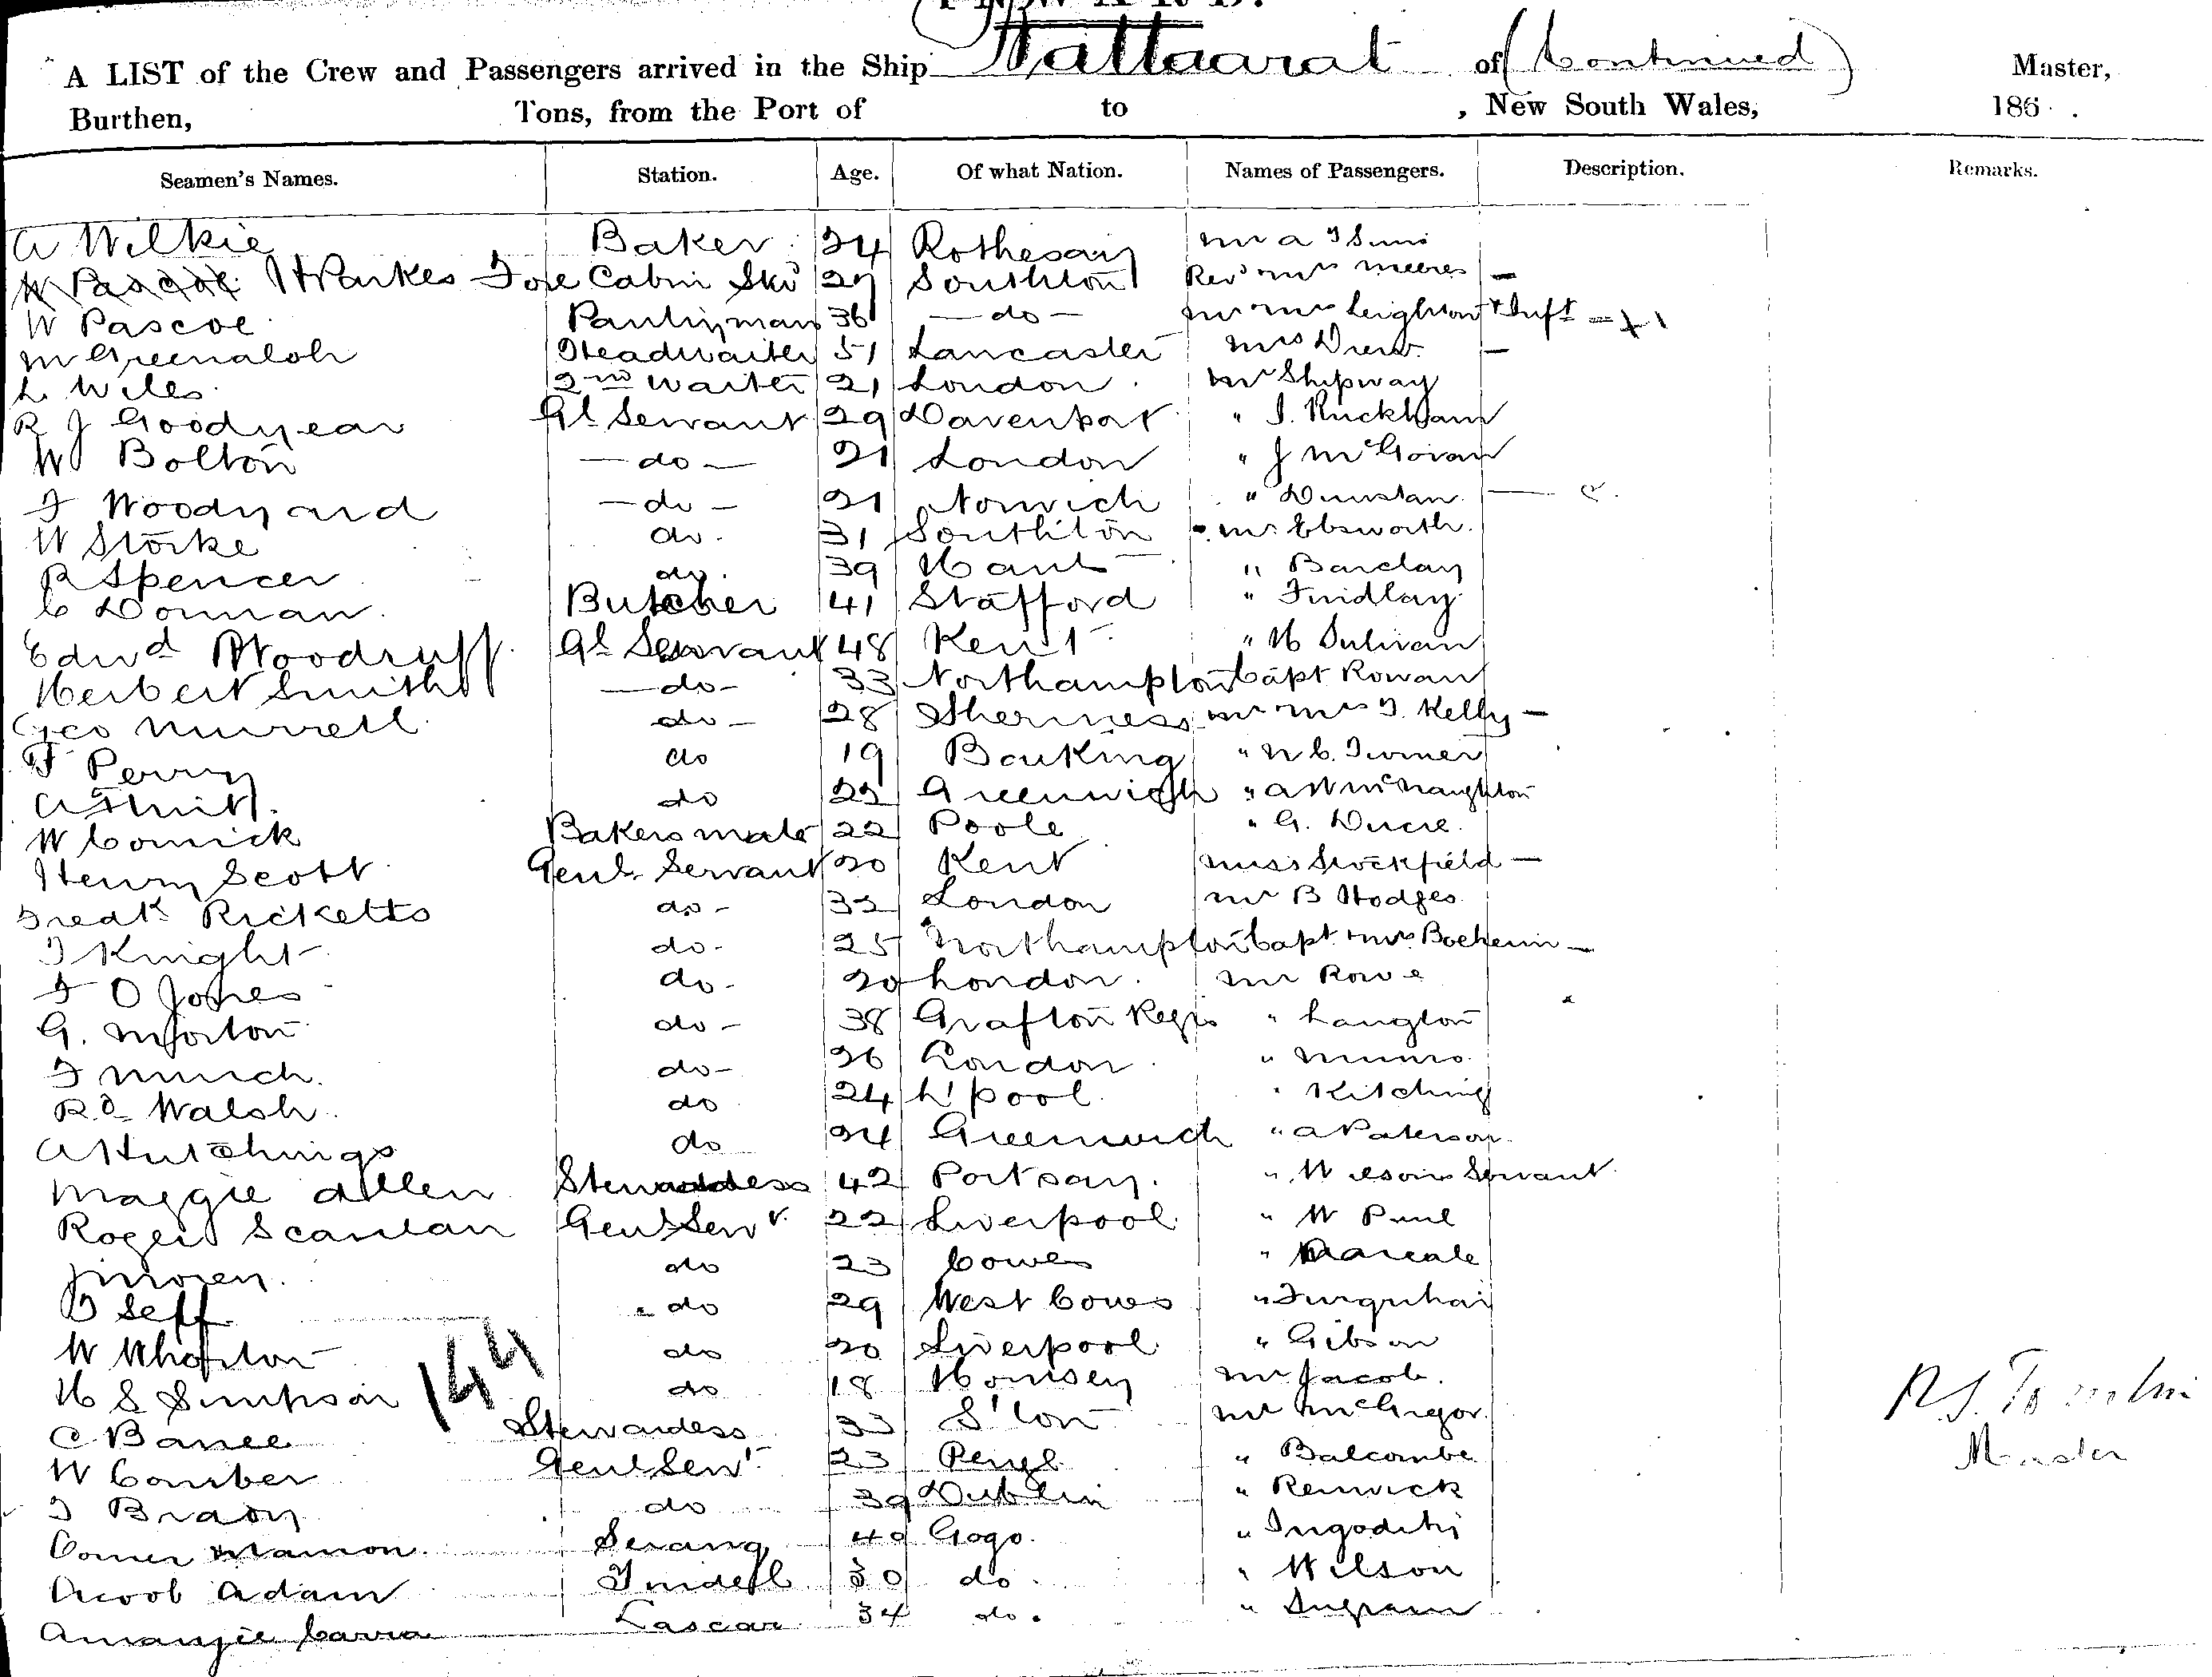 A LIST of the Crew and Passengers arrived in the Ship Ballaarat of (Continued) Master,
Burthen, Tons, from the Port of to , New South Wales, 186 .
Seamen's Names. Station. Age. Of what Nation. Names of Passengers. Description. Remarks.
A Wilkie Baker 34 Rothesay Mr A
W Pascoe H Parkes Fore Cabin Skd 29 Southton Revd Mrs Meeres —
W Pascoe Pantryman 36 — do — Mr Mrs Leighton & Inft
M Greenalgh Headwaiter 51 Lancaster Mrs Drew —
L Wiles 2nd Waiter 21 London Mr Shipway
R J Goodyear Gl Servant 29 Davenport " J. Huckham
W Bolton — do — 21 London " J McGowan
F Woodyard — do — 21 Norwich " Dunstan
W Storke do 31 Southton Mr Ebsworth
R Spencer do 39 Hants " Barclay
C Dorman Butcher 41 Stafford " Findlay
Edwd Woodruff Gl Servant 48 Kent " H Sulivan
Herbert Smith — do — 33 Northampton Capt Rowan
Geo Murrell do — 28 Sherness Mr Mrs T. Kelly —
F Perry do 19 Barking " W C. Turner
A do 22 Greenwich " A W McNaughton
W Cornick Bakers mate 22 Poole " G.
Henry Scott Genl Servant 20 Kent Miss Stockfield —
Fredk Ricketts do — 32 London Mr B Hodges
T Knight do — 25 Northampton Capt & Mrs —
F O Jones do — 20 London Mr Rowe
G. Morton do — 38 Grafton Regis " Langton
F Munich do — 26 London " Munro
Rd Walsh do 24 L'pool " Kitching
A Hutchings do 24 Greenwich " A Paterson
Maggie Allen Stewardess 42 Portsay " Wilsons Servant
Roger Scanlan Genl Servt 22 Liverpool " W Paul
J Moren do 23 Cowes
B Seff do 29 West Cowes " Furquhar
W Whorton do 20 Liverpool " Gibson
H S Simpson 144 do 18 Hornsey Mr Jacob
C Banee Stewardess 33 S'ton Mr McGregor
W Comber Genl Servt 23 Penge " Balcombe
T Brady do 39 Dublin " Renwick
Oomer Mamon Serang 40 Gogo
Acoob Adam Tindell 30 do " Wilson
Amanjie Carra Lascar 34 do " Ingram
Master